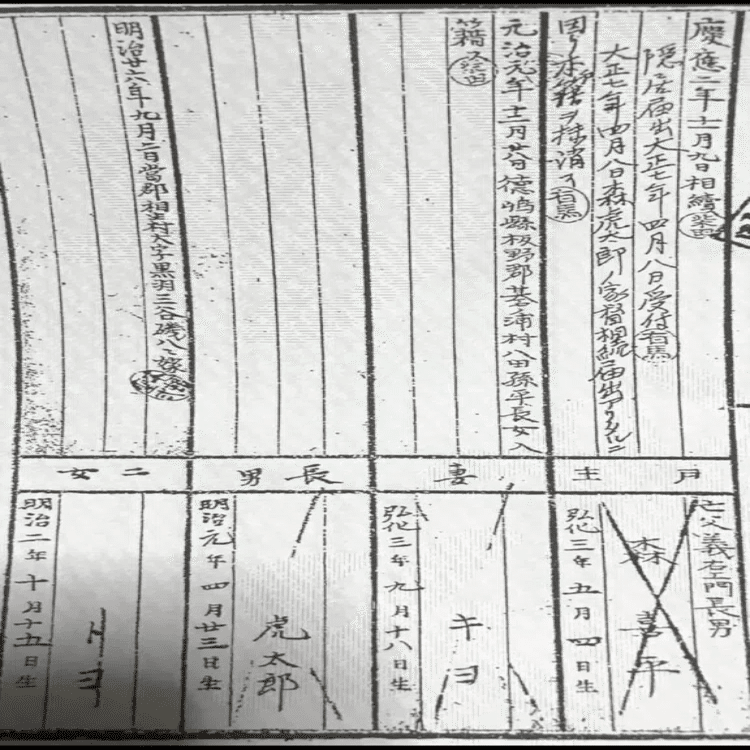 慶應二年十二月九日相續
隠居届出大正七年四月八日受付有馬
大正七年四月八日森虎太郎ノ家督相続届出アリタルニ
因リ本戸籍ヲ抹消ス有馬
戸主
亡父義右エ門長男
森喜平
弘化三年五月四日生
元治元年十二月廿八日德嶋縣板野郡基浦村八田孫平長女入
籍ス
妻
キヨ
弘化三年九月十八日生
長男
虎太郎
明治元年四月廿三日生
明治廿六年九月二日當郡相生村大字黒羽三谷磯八ヘ嫁
二女
トヨ
明治二年十月十五日生